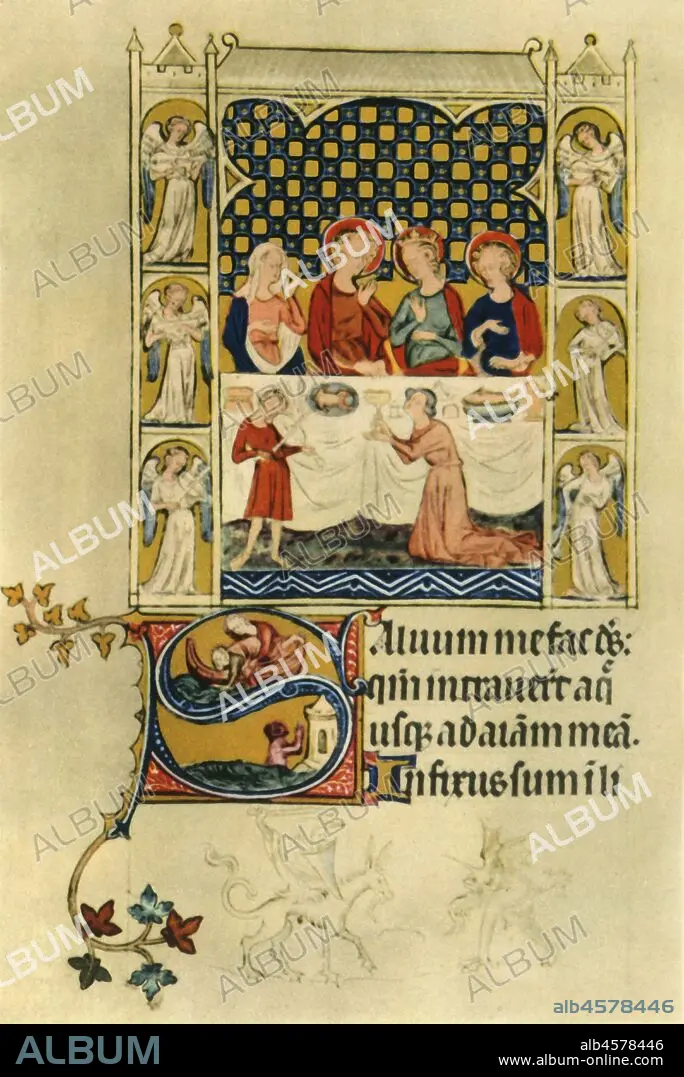 Saluum me fac ds̄:
qm̄ intrauer̄t aq̄
usq; ad aīam meā.
Infixus sum i li
alb4578446
ALBUM
alb4578446
www.album-online.com